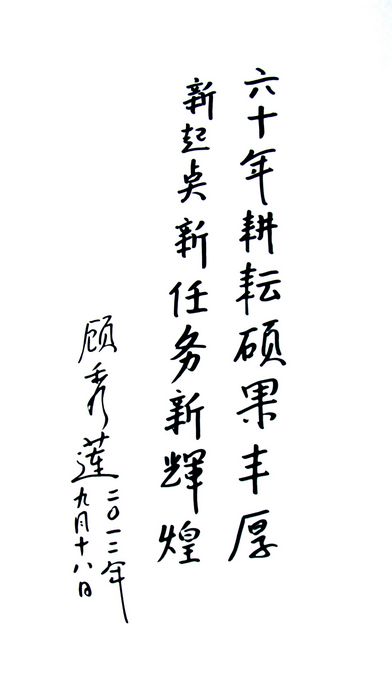 六十年耕耘硕果丰厚
新起点新任务新辉煌
顾秀莲
二〇一二年
九月十八日